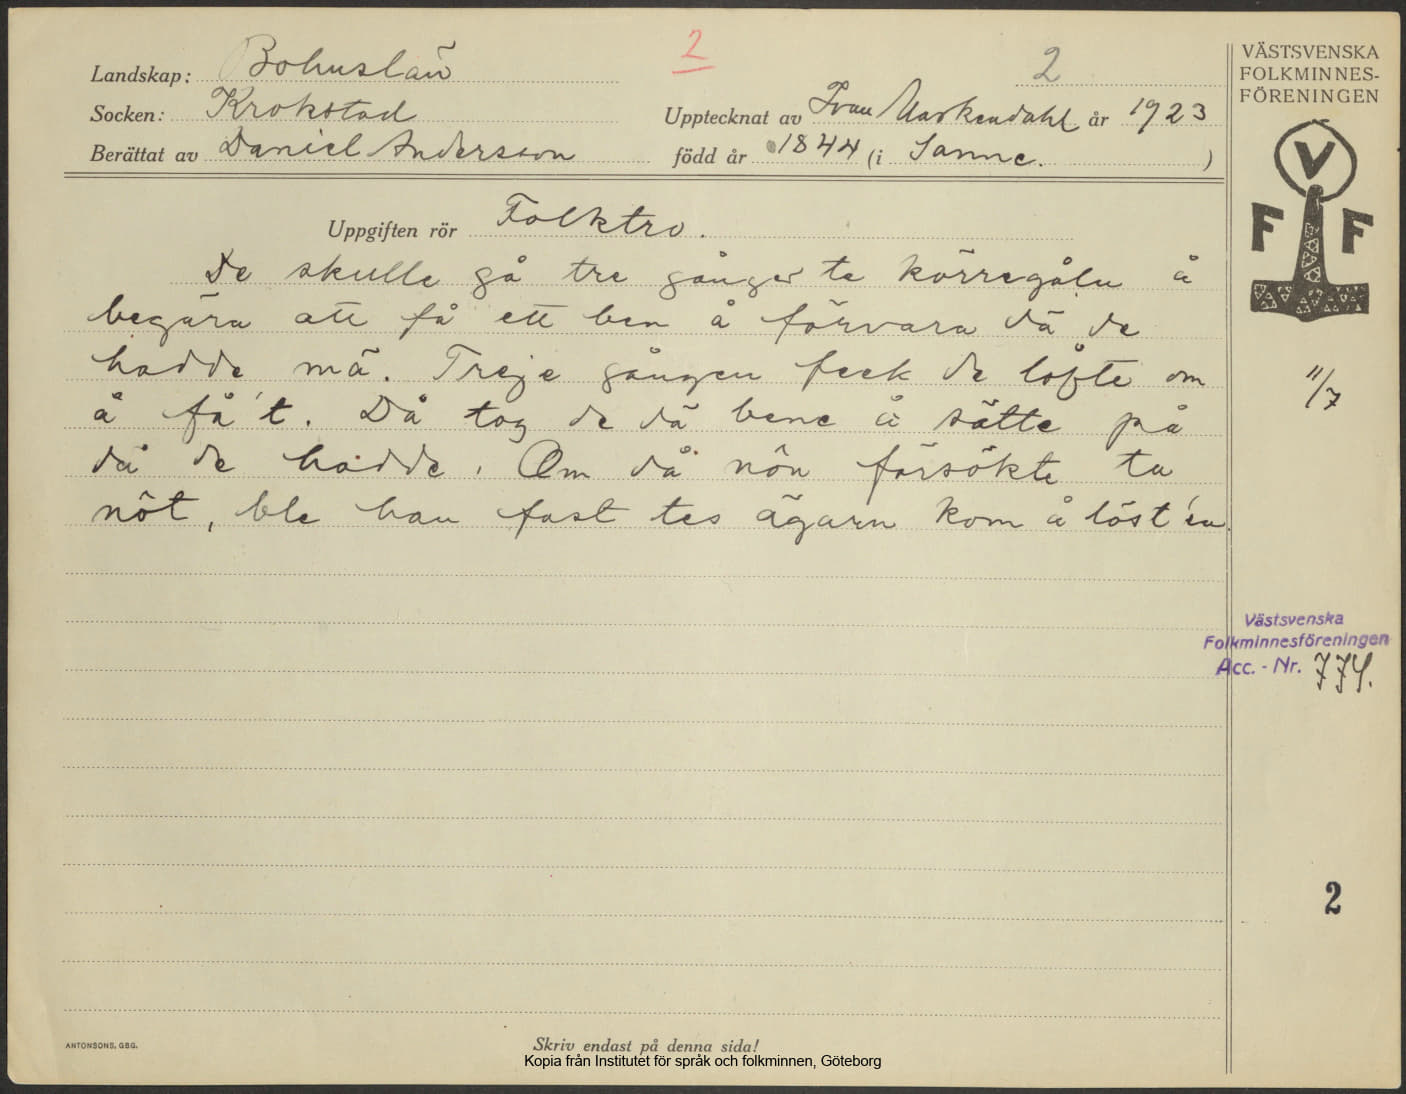 2
2
Landskap: Bohuslän
Socken: Krokstad
Upptecknat av Ivan Markendahl år 1923
Berättat av Daniel Andersson
född år 1844 (i Sanne. )
Uppgiften rör Folktro.
De skulle gå tre gånger te körregåln å
begära att få ett ben å förvara dä de
hadde mä. Treje gången feck de löfte om
å få't. Då tog de dä bene å sätte på
dä de hadde. Om då nôn försökte ta
nôt, ble han fast tes ägarn kom å löst'en.
VÄSTSVENSKA
FOLKMINNES-
FÖRENINGEN
V
F F
11/7
Västsvenska
Folkminnesföreningen
Acc. - Nr. 774.
2
ANTONSONS, GBG.
Skriv endast på denna sida!
Kopia från Institutet för språk och folkminnen, Göteborg